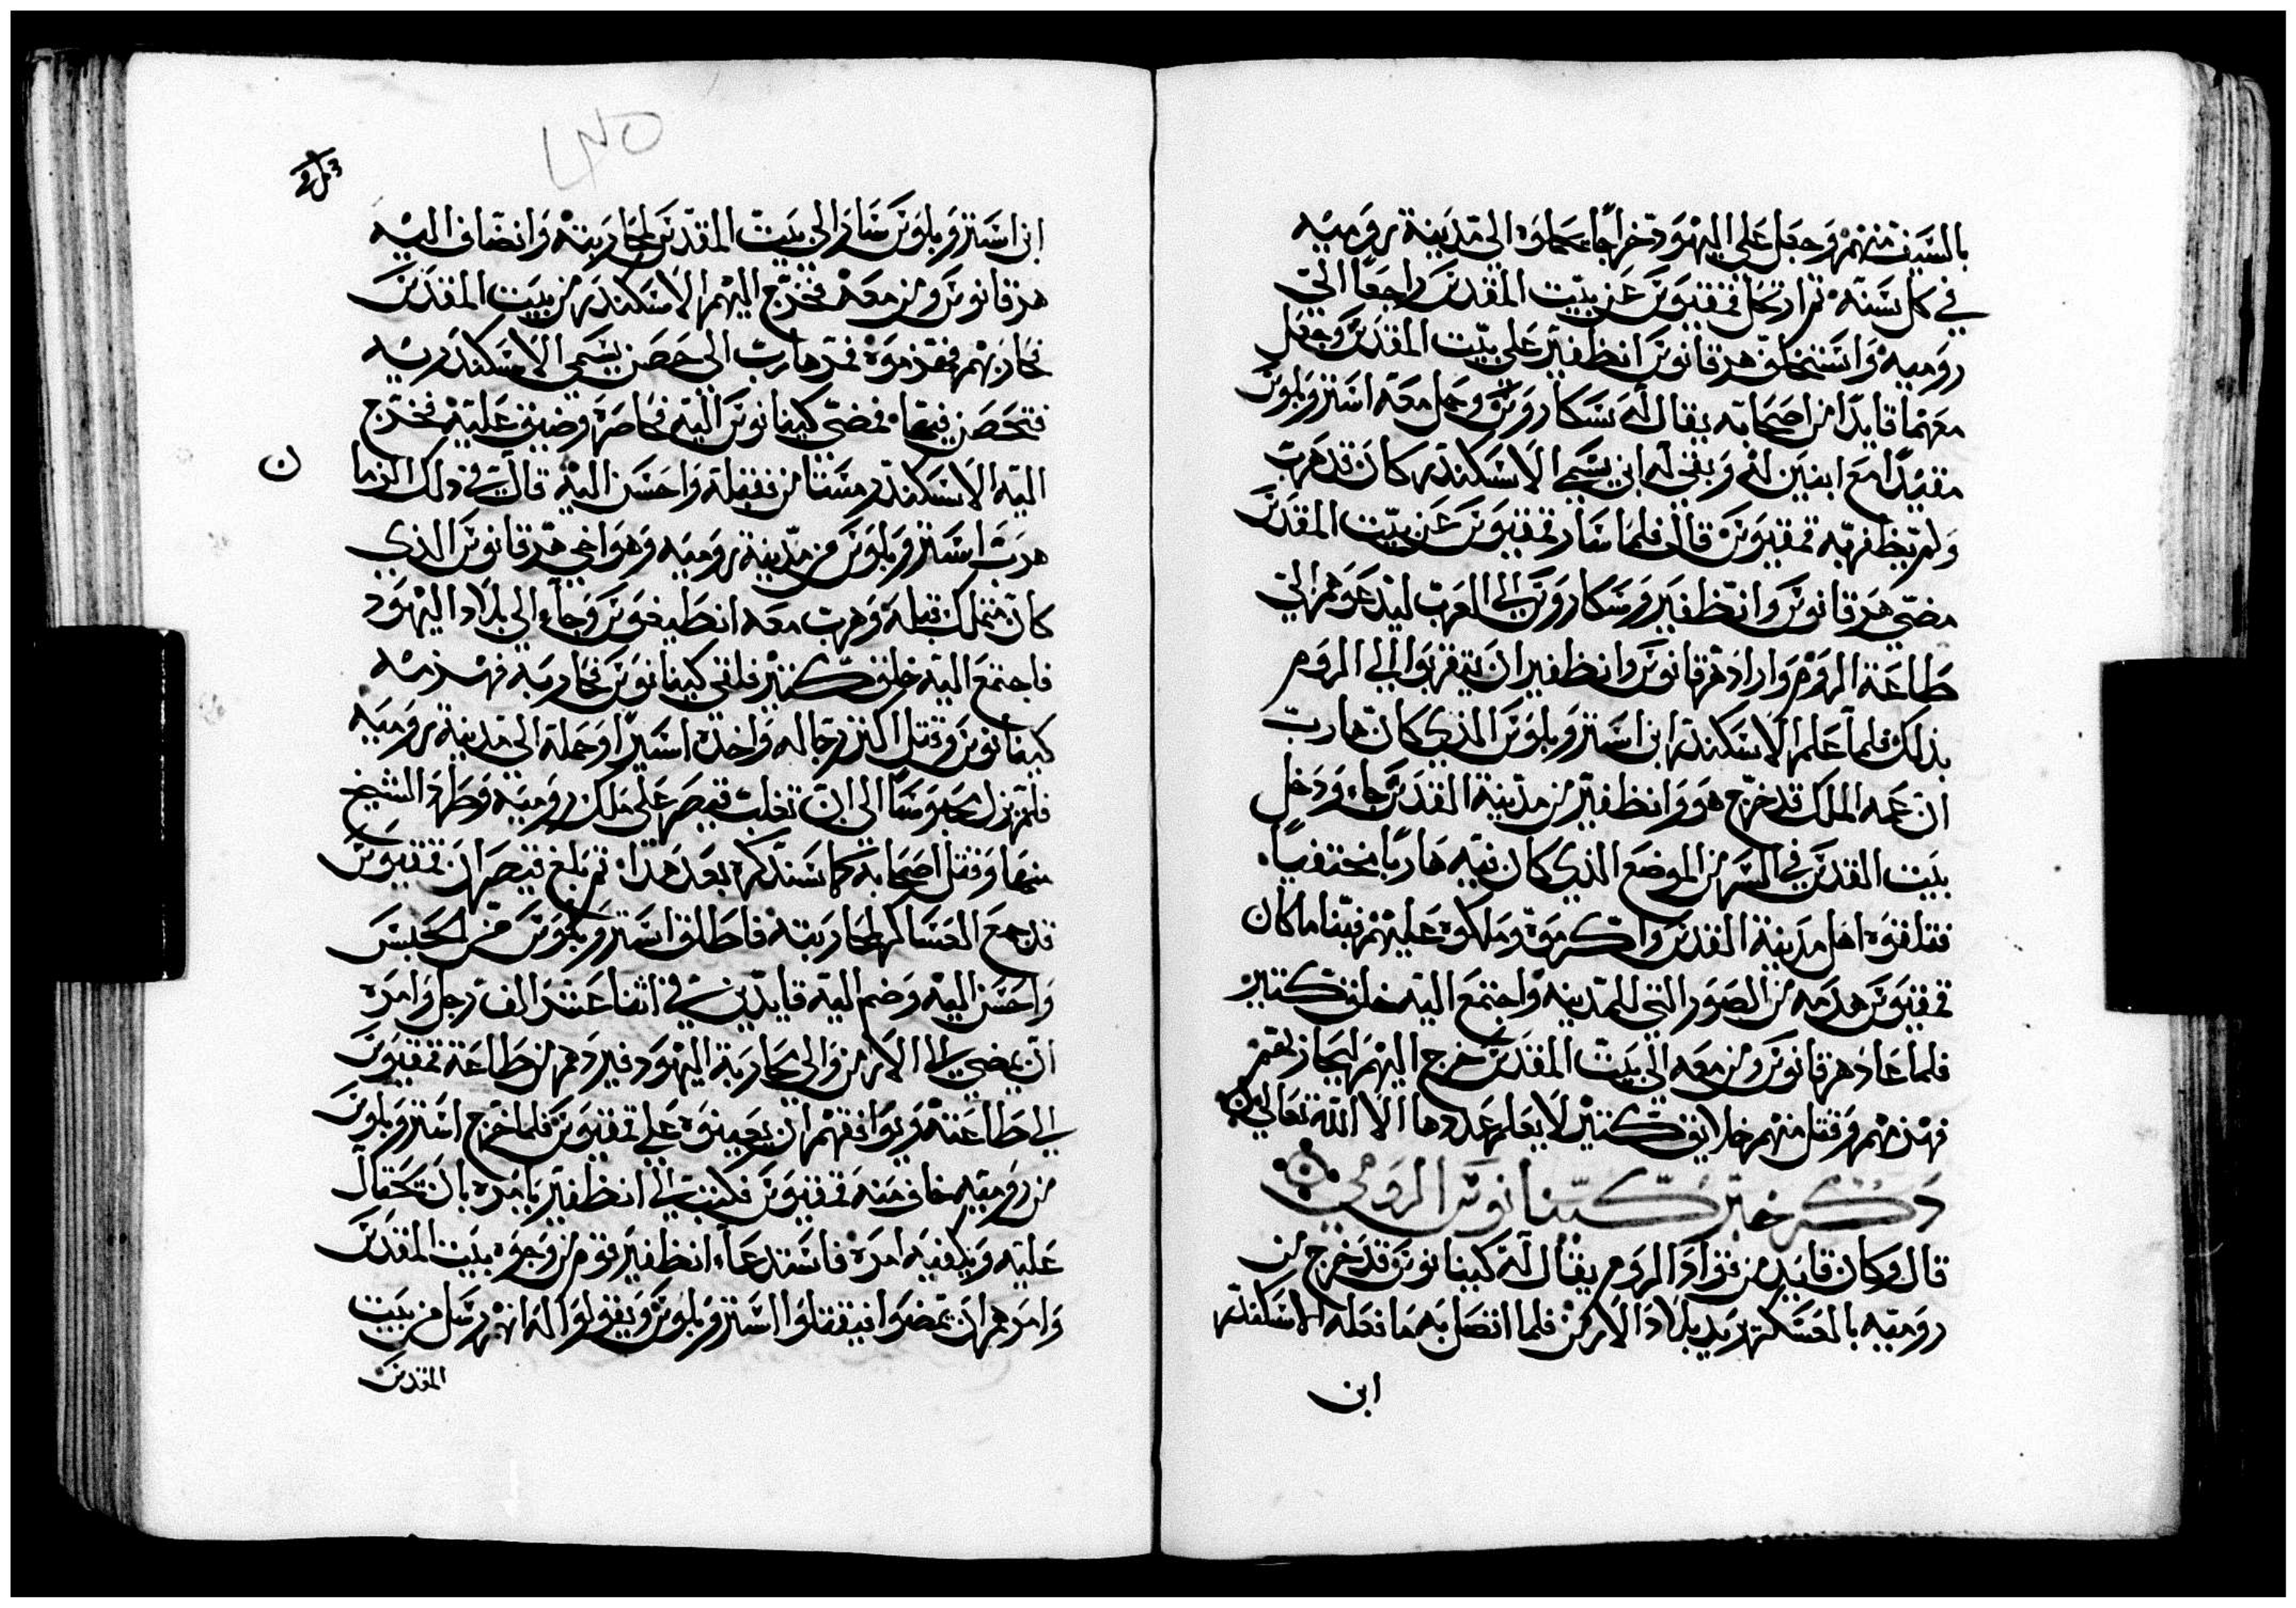 بالسيف منهم وجعل على اليهود خراجا يحملوه الى مدينة رومية
في كل سنة ثم ارتحل فمقيوس عن بيت المقدس راجعا الى
رومية واستخلف هرقانوس انطفير على بيت المقدس وجعل
معهما قايدا من اصحابه يقال له سكاروس وحمل معه استروبلوس
مقيدا مع ابنين له وبقي له ابن يسمى الاسكندر كان قد هرب
ولم يظفر به فمقيوس قال فلما سار فمقيوس عن بيت المقدس
مضى هرقانوس وانطفير وسكاروس الى العرب ليدعوهم الى
طاعة الروم واراد هرقانوس وانطفير ان يتقربوا الى الروم
بذلك فلما علم الاسكندر ابن استروبلوس الذي كان هارب
ان عمه الملك قد خرج هو وانطفير من مدينة القدس جاء ودخل
بيت القدس في السر من الموضع الذي كان فيه هاربا مختفيا
فتلقوه اهل مدينة القدس واكرموه وملكوه عليهم فبنا ما كان
فمقيوس هدمه من الصور التي للمدينه واجتمع اليه خلق كتير
فلما عاد هرقانوس ومن معه الى بيت المقدس خرج اليهم ليحاربهم
فهزمهم وقتل منهم خلايق كتير لا يعلم عددها الا الله تعالى
ذكر خبر كينانوس الرومي
قال وكان قايد من قواد الروم يقال له كينانوس قد خرج من
رومية بالعسكر يريد بلاد الارمن فلما اتصل به ما فعله الاسكندر
ابن
ابن استروبلوس سار الى بيت المقدس لمحاربته وانضاف اليه
هرقانوس ومن معه فخرج اليهم الاسكندر من بيت المقدس
فحاربهم فهزموه فمر هارب الى حصن يسمى الاسكندريه
فتحصن فيها فمضى كينانوس اليه فحاصره وضيق عليه فخرج
اليه الاسكندر مستامن فقبله واحسن اليه قال في ذلك الزما
ن
هرب استروبلوس من مدينة رومية وهو اخي هرقانوس الذي
كان متملك قبله وهرب معه انطيغوس وجاء الى بلاد اليهود
فاجتمع اليه خلق كتير فلقى كينانوس فحاربه فهزمه
كينانوس وقتل اكتر رجاله واخده اسيرا وحمله الى مدينة رومية
فلم يزل محبوسا الى ان تغلب قيصر على ملك رومية وطرد الشيخ
منها وقتل اصحابه كما سنذكره بعد هدا ثم بلغ قيصر ان فمقيوس
قد جمع العساكر لمحاربته فاطلق استروبلوس من الحبس
واحسن اليه وضم اليه قايدين في اثنا عشر الف رجل وامره
ان يمضي الى الارمن والى محاربة اليهود فيردهم من طاعة فمقيوس
الى طاعته ويوافقهم ان يعينوه على فمقيوس فلما خرج استروبلوس
من رومية خاف منه فمقيوس فكتب الى انطفير يامره بان يحتال
عليه ويكفيه امره فاستدعاء انطفير قوم من وجوه بيت المقدس
وامرهم ان يمضوا فيقتلوا استروبلوس ويقولوا له انهم رسل من بيت
المقدس